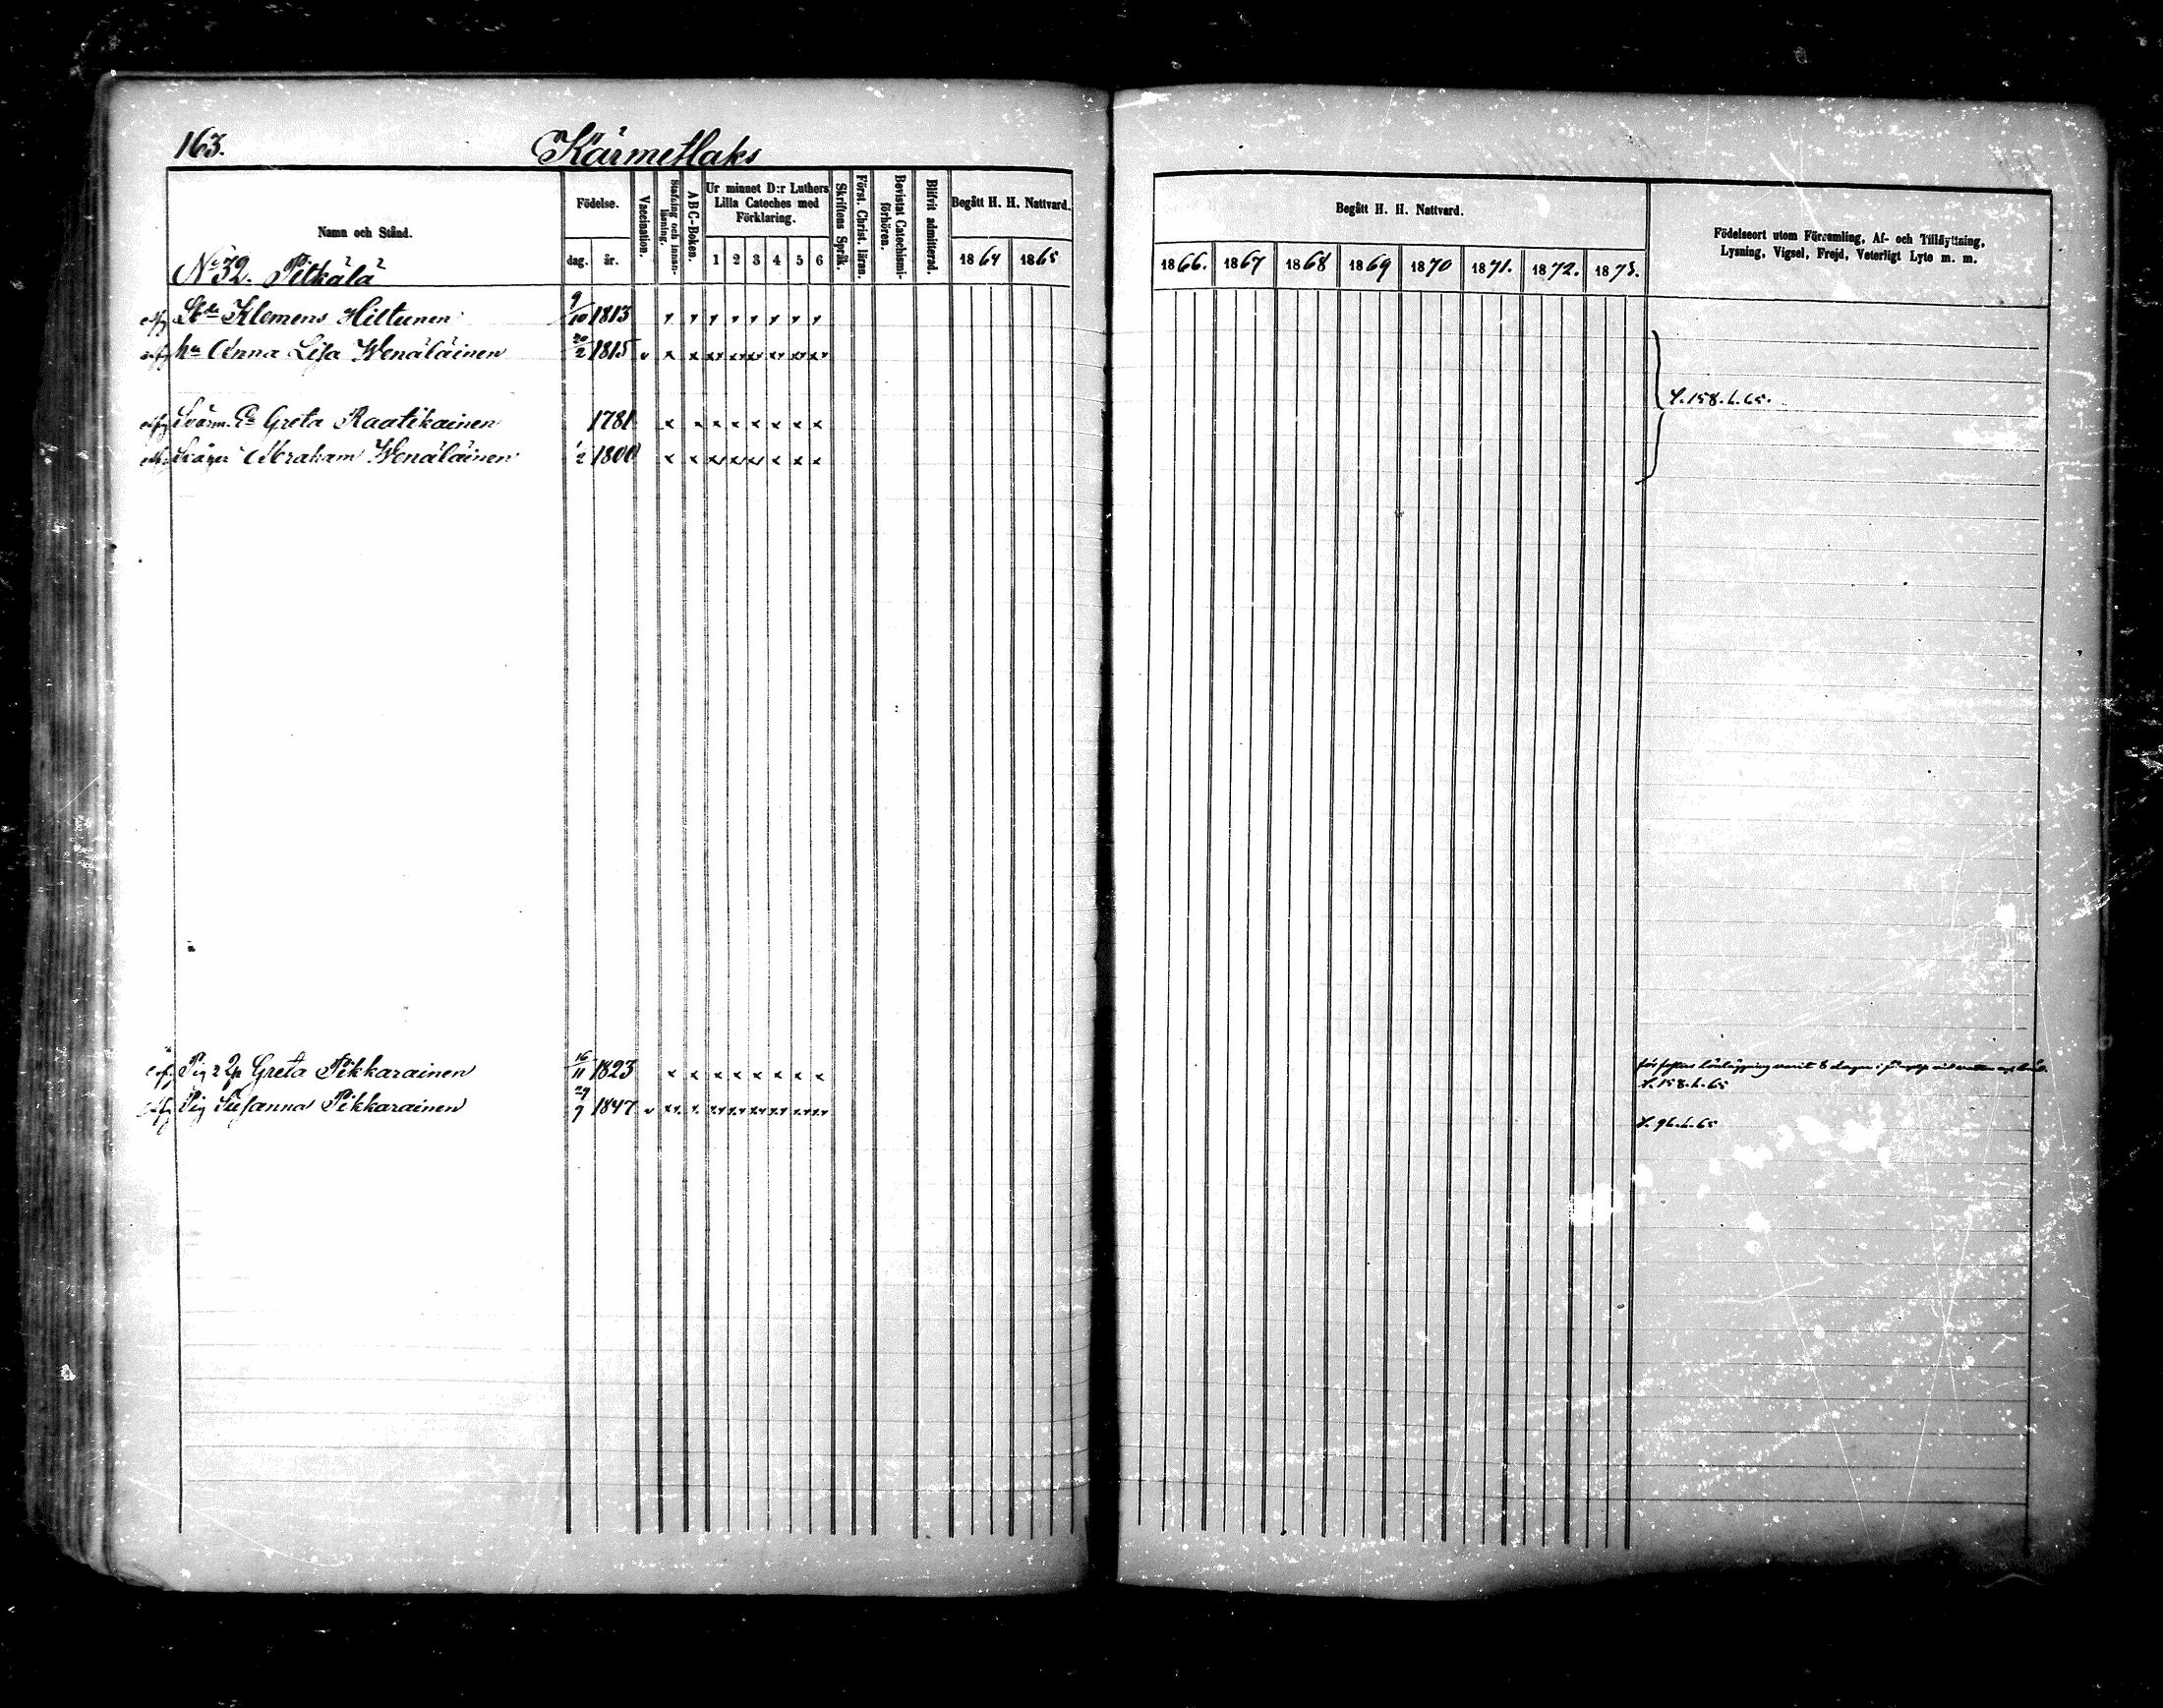 163. Kärmetlaks
Namn och Stånd.
Födelse.
dag. år.
Vaccination.
Stafning och innan-läsning.
ABC-Boken.
Ur minnet D:r Luthers
Lilla Cateches med
Förklaring.
1 2 3 4 5 6
Skriftens Språk.
Först. Christ. läran.
Bevistat Catechismi-förhören.
Blifvit admitterad.
Begått H. H. Nattvard.
1864 1865
No 32. Pitkälä
Klemens Hiltunen 9/10 1813
hu Anna Lisa Wenäläinen 20/2 1815
Svärm. Greta Raatikainen 1781
Svåger Abraham Wenäläinen 1/2 1800
Pig Greta Pikkarainen 16/11 1823
Pig Susanna Pikkarainen 29/9 1847
Begått H. H. Nattvard.
1866. 1867 1868 1869 1870 1871. 1872. 1873.
Födelseort utom Församling, Af- och Tillflyttning,
Lysning, Vigsel, Frejd, Veterligt Lyte m. m.
Y. 158. L. 65.
Y. 158. L. 65
Y. 96. L. 65